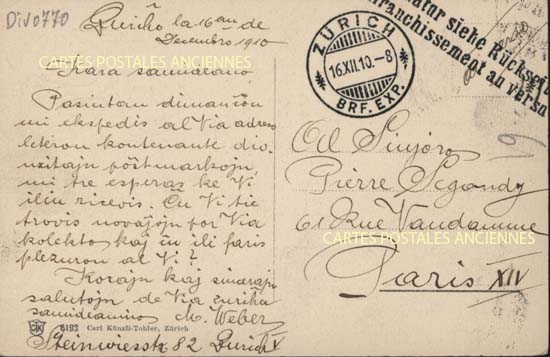 Div0770
Zuriĥo la 16an de
Desembro 1910
Kara samideano,
Pasintan dimanĉon
mi ekspedis al Via adreso
leteron kontenante div.
uzitajn pöstmarkojn,
mi tre esperas ke Vi
ilin ricevis. Ĉu Vi tie
trovis novajojn por Via
kolekto kaj ĉu ili faris
plezuron al Vi?
Korajn kaj sincerajn
salutojn de Via zuriĥa
samideanino M. Weber
Steinwiesstr. 82 Zürich V
6193 Carl Künzli-Tobler, Zürich
CARTES POSTALES ANCIENNES
ZÜRICH
16.XII.10.-8
BRF. EXP.
siehe Rückseite
affranchissement au verso
Al Sinjoro
Pierre Segondy
61 Rue Vandamme
CARTES POSTALES ANCIENNES
Paris XIV